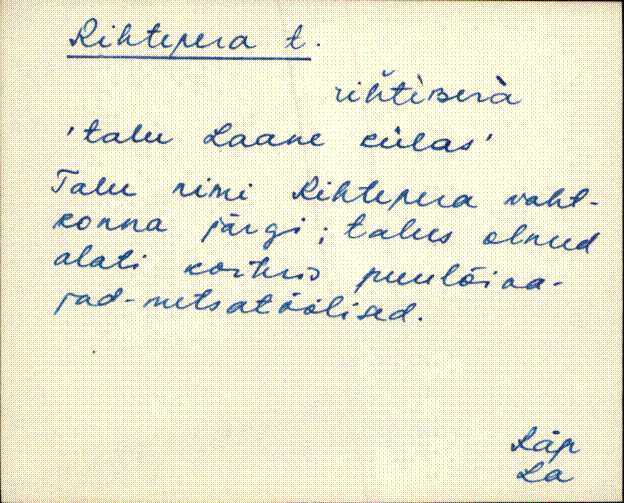 Rihtepera t.
rih̆tèʙerà
'talu Laane külas'
Talu nimi Rihtepera vaht-
konna järgi; talus olnud
alati korteris puulõiga-
jad-metsatöölised.
Läp
La